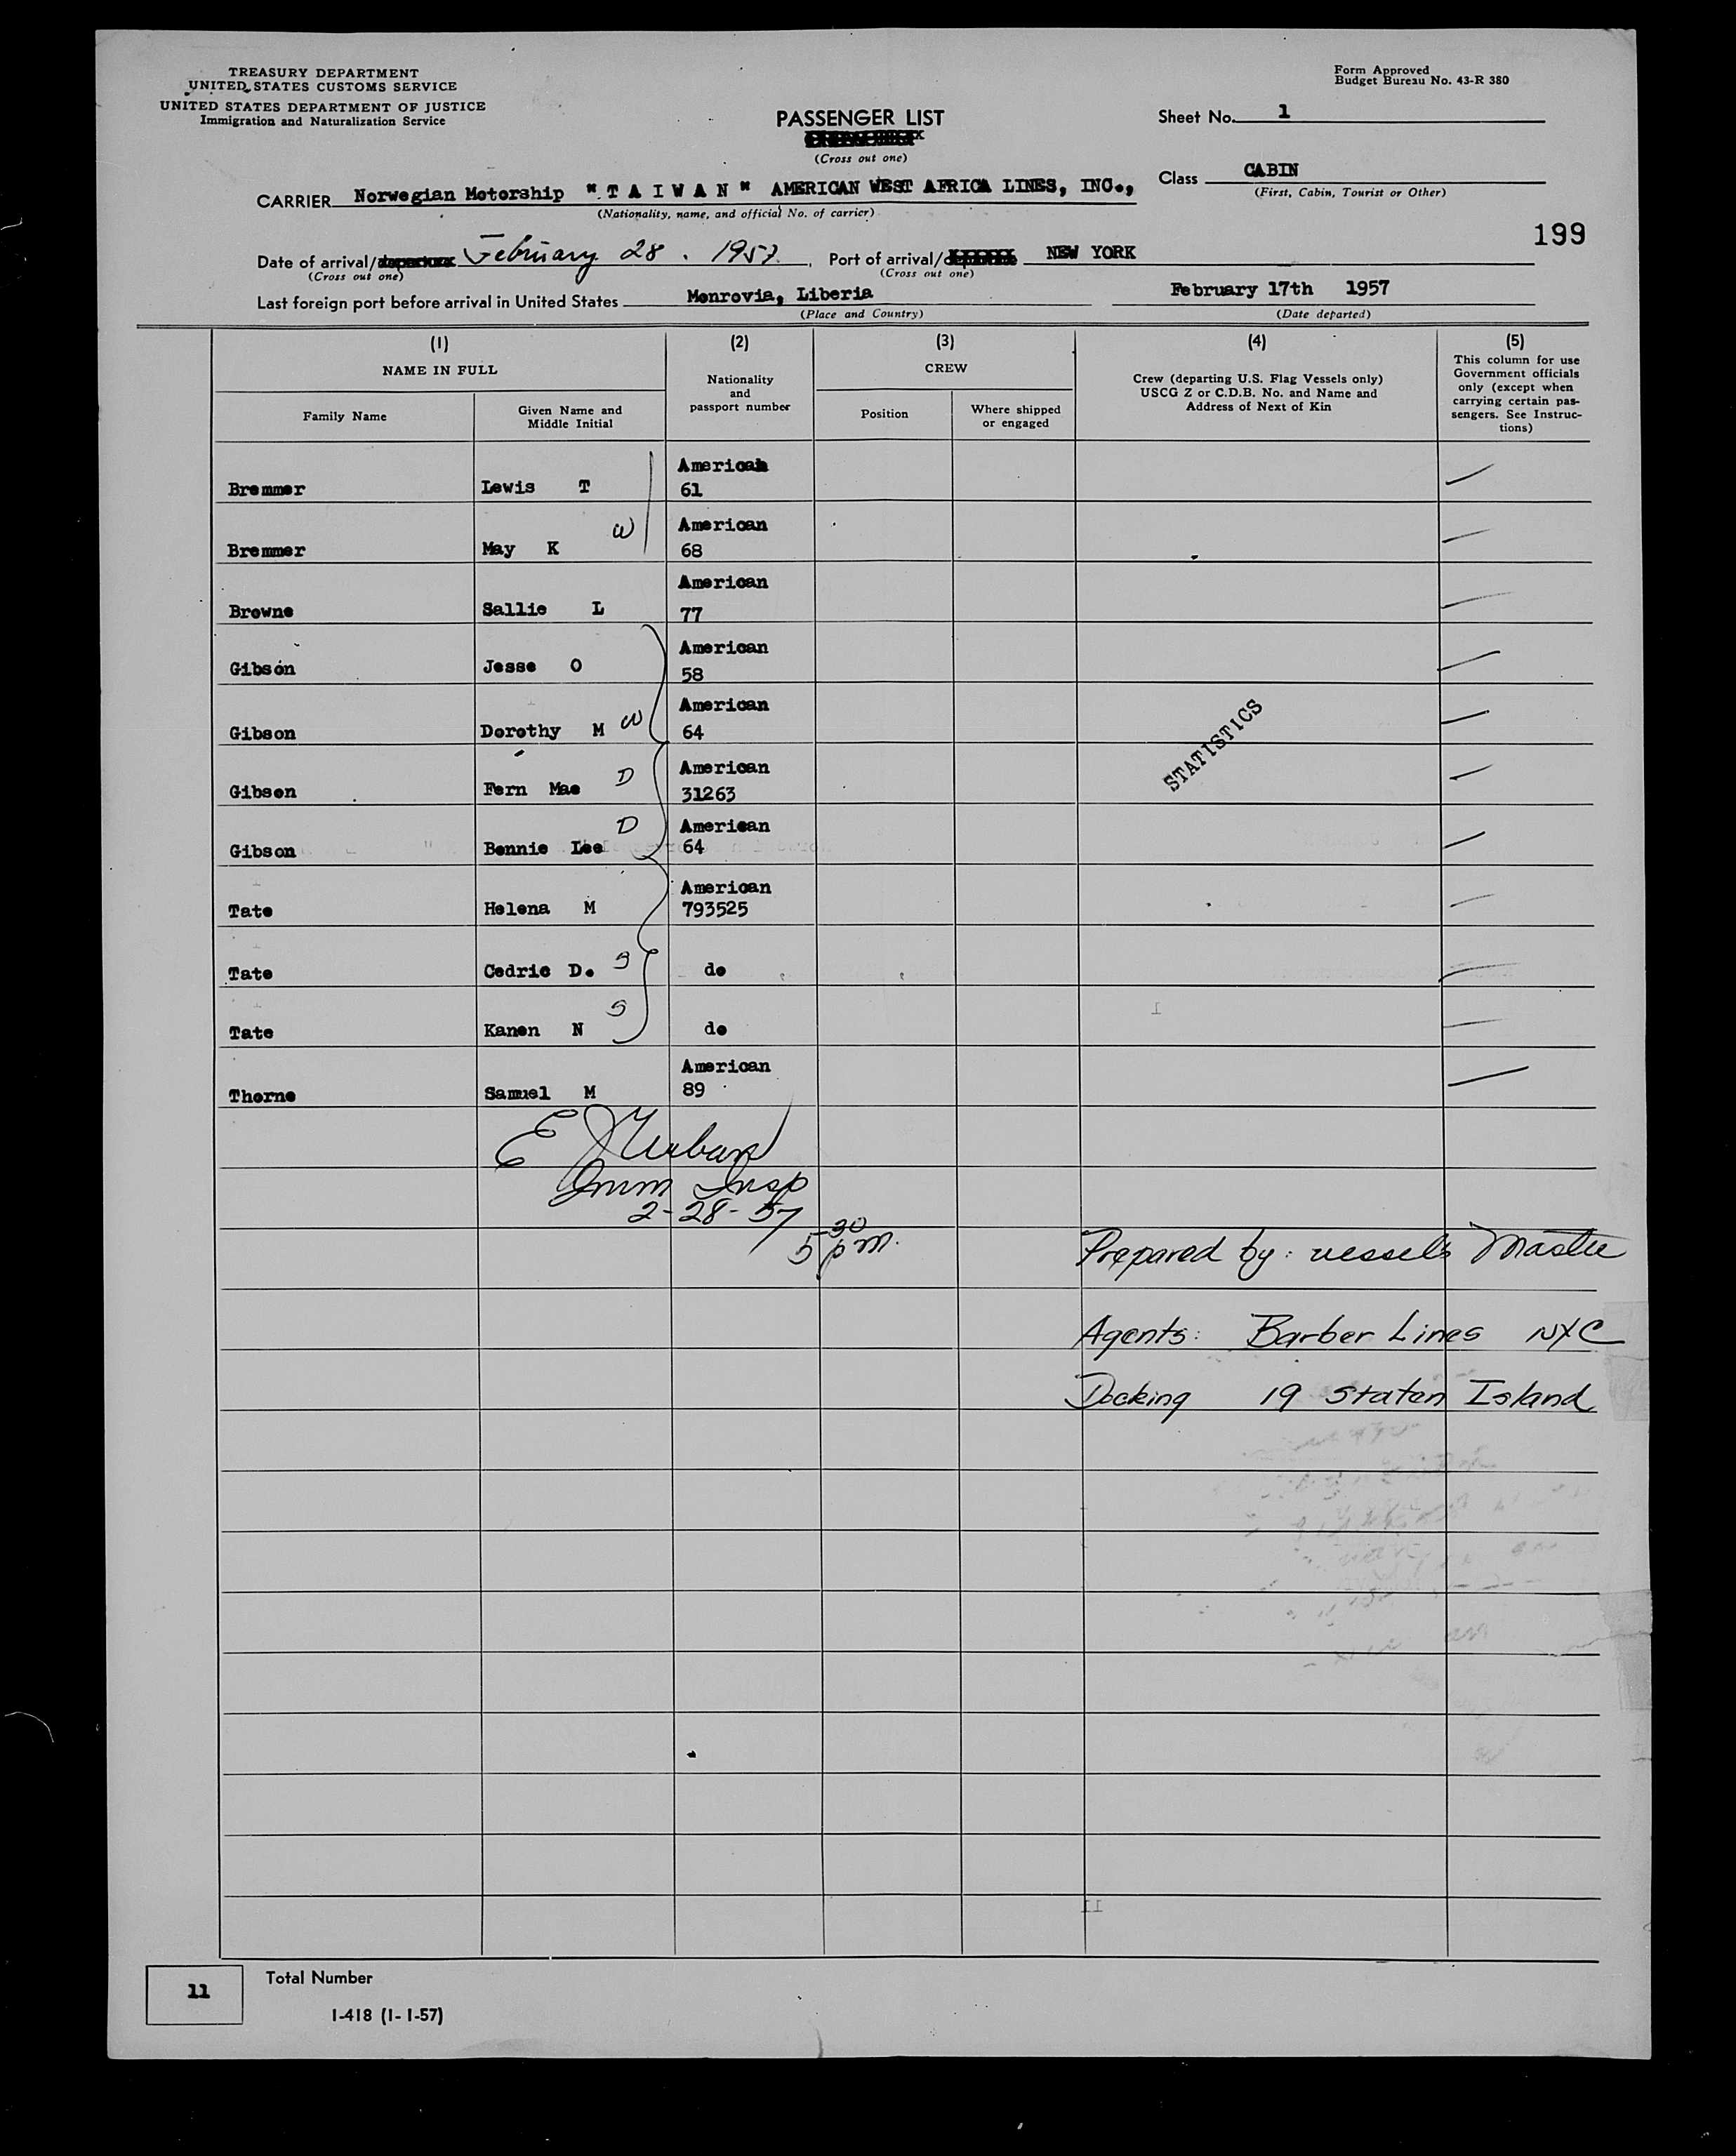 TREASURY DEPARTMENT
UNITED STATES CUSTOMS SERVICE
UNITED STATES DEPARTMENT OF JUSTICE
Immigration and Naturalization Service
Form Approved
Budget Bureau No. 43-R 380
PASSENGER LIST
(Cross out one)
Sheet No. 1
CARRIER Norwegian Motorship "T A I W A N" AMERICAN WEST AFRICA LINES, INC.,
(Nationality, name, and official No. of carrier)
Class CABIN
(First, Cabin, Tourist or Other)
199
Date of arrival/ February 28. 1957. Port of arrival/ NEW YORK
(Cross out one) (Cross out one)
Last foreign port before arrival in United States Monrovia, Liberia February 17th 1957
(Place and Country) (Date departed)
(1) (2) (3) (4) (5)
NAME IN FULL
Family Name
Given Name and
Middle Initial
Nationality
and
passport number
CREW
Position
Where shipped
or engaged
Crew (departing U.S. Flag Vessels only)
USCG Z or C.D.B. No. and Name and
Address of Next of Kin
This column for use
Government officials
only (except when
carrying certain pas-
sengers. See Instruc-
tions)
American
Bremmer Lewis T 61
American
Bremmer May K W 68
American
Browne Sallie L 77
American
Gibson Jesse O 58
American
Gibson Dorothy M W 64
American
Gibson Fern Mae D 31263
American
Gibson Bennie Lee D 64
American
Tate Helena M 793525
Tate Cedric D. S do
Tate Kanen N S do
American
Thorne Samuel M 89
STATISTICS
E J Urban
Imm Insp
2-28-57
5 30 pm.
Prepared by: vessels Master
Agents: Barber Lines NYC
Docking 19 Staten Island
11 Total Number
I-418 (1-1-57)